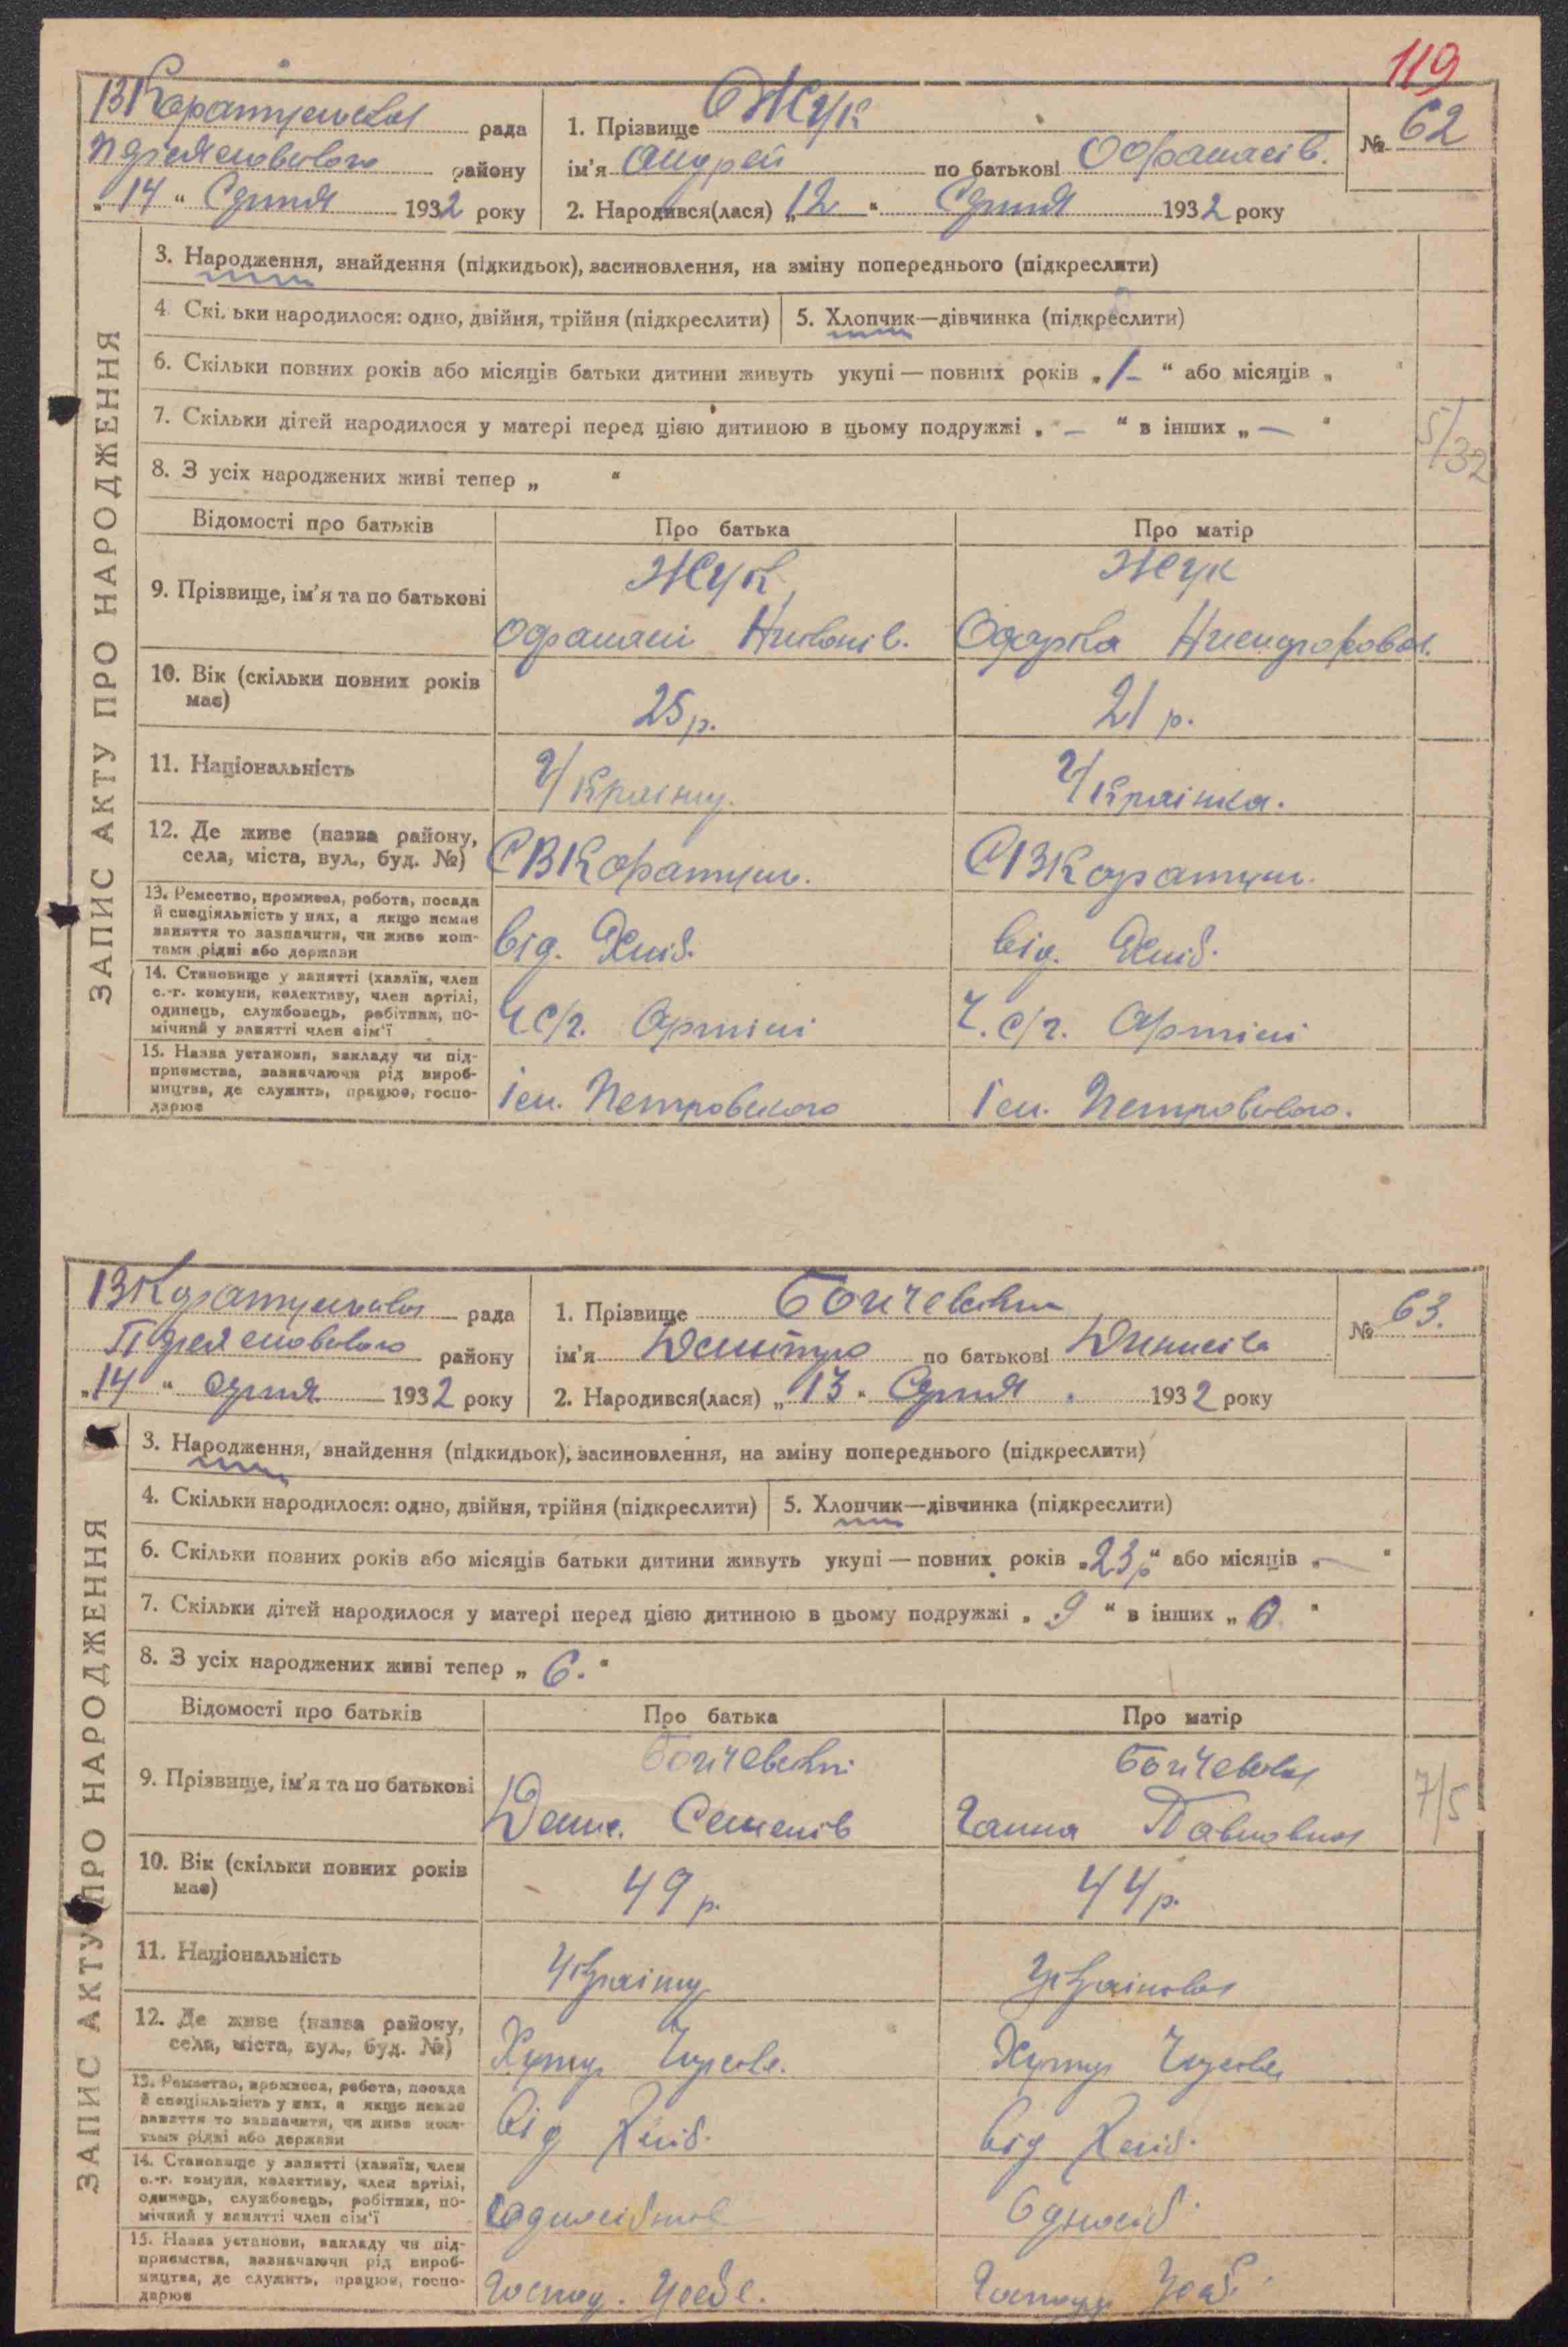 119
ЗАПИС АКТУ ПРО НАРОДЖЕННЯ
рада
району
„14“ Серпня 1932 року
1. Прізвище Жук
ім'я Андрей по батькові Офанасів.
№ 62
2. Народився(лася) „12“ Серпня 1932 року
3. Народження, знайдення (підкидьок), засиновлення, на зміну попереднього (підкреслити)
4. Скільки народилося: одно, двійня, трійня (підкреслити)
5. Хлопчик—дівчинка (підкреслити)
6. Скільки повних років або місяців батьки дитини живуть укупі — повних років „1–“ або місяців „ “
7. Скільки дітей народилося у матері перед цією дитиною в цьому подружжі „–“ в інших „–“
5/32
8. З усіх народжених живі тепер „ “
Відомості про батьків Про батька Про матір
9. Прізвище, ім'я та по батькові
Жук Жук
Офанасій Никонів. Одарка Никифоровна.
10. Вік (скільки повних років має) 25 р. 21 р.
11. Національність Україну. Українка.
12. Де живе (назва району, села, міста, вул., буд. №) С ВКаратуль. С ВКаратул.
13. Ремество, промисел, робота, посада
й спеціяльність у них, а якщо немає
заняття то зазначити, чи живе кош-
тами рідні або держави
від. Хліб. від. Хліб.
14. Становище у занятті (хазяїн, член
с.-г. комуни, колективу, член артілі,
одинець, службовець, робітник, по-
мічний у занятті член сім'ї
Ч с/г. Артілі Ч. с/г. Артілі
15. Назва установи, закладу чи під-
приємства, зазначаючи рід вироб-
ництва, де служить, працює, госпо-
дарює
Ім. Петровського Ім. Петровського.
ЗАПИС АКТУ ПРО НАРОДЖЕННЯ
рада
району
„14“ Серпня 1932 року
1. Прізвище
ім'я Дмитро по батькові
№ 63.
2. Народився(лася) „13“ Серпня 1932 року
3. Народження, знайдення (підкидьок), засиновлення, на зміну попереднього (підкреслити)
4. Скільки народилося: одно, двійня, трійня (підкреслити)
5. Хлопчик—дівчинка (підкреслити)
6. Скільки повних років або місяців батьки дитини живуть укупі — повних років „23 р“ або місяців „–“
7. Скільки дітей народилося у матері перед цією дитиною в цьому подружжі „9“ в інших „0“
8. З усіх народжених живі тепер „6.“
Відомості про батьків Про батька Про матір
9. Прізвище, ім'я та по батькові
Семенів Ганна Павловна
7/5
10. Вік (скільки повних років має) 49 р. 44 р.
11. Національність Україну Українка
12. Де живе (назва району, села, міста, вул., буд. №) Хутур Хутур
13. Ремество, промисел, робота, посада
й спеціяльність у них, а якщо немає
заняття то зазначити, чи живе кош-
тами рідні або держави
від Хліб. від Хліб.
14. Становище у занятті (хазяїн, член
с.-г. комуни, колективу, член артілі,
одинець, службовець, робітник, по-
мічний у занятті член сім'ї
Одноосіб.
15. Назва установи, закладу чи під-
приємства, зазначаючи рід вироб-
ництва, де служить, працює, госпо-
дарює
Господ. У себе.